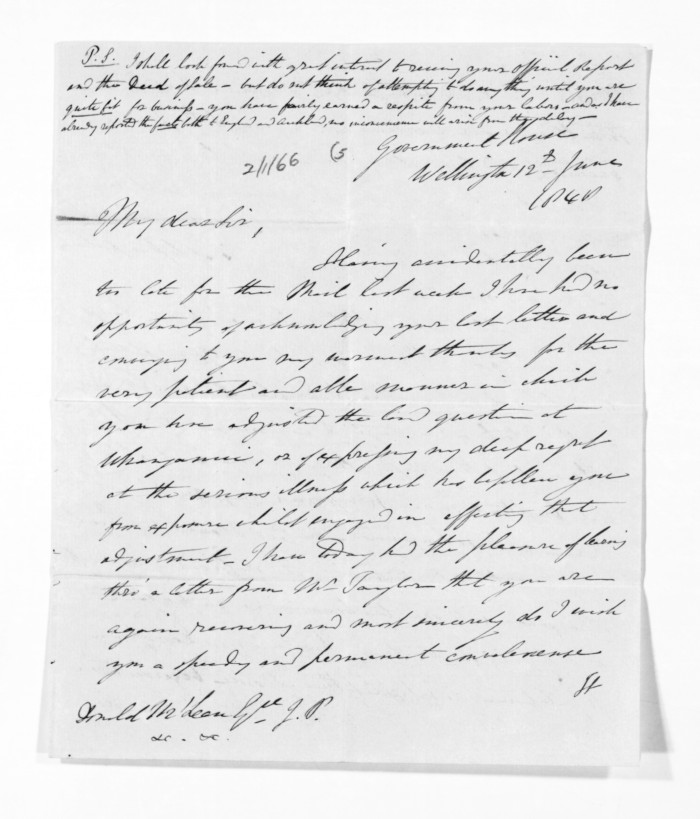 P.S. I shall look forward with great interest to receiving your Official Report
and the Deed of Sale - but do not think of attempting to do any thing until you are
quite fit for business - you have fairly earned a respite from your labors - and as I have
already reported the facts both to England and Auckland, no inconvenience will arise from the delay -
2/1/66 (5
Government House
Wellington 12th June
1848
My dear Sir,
Having accidentally been
too late for the Mail last week I have had no
opportunity of acknowledging your last letter and
conveying to you my warmest thanks for the
very patient and able manner in which
you have adjusted the land question at
Whanganui, or of expressing my deep regret
at the serious illness which has befallen you
from exposure whilst engaged in effecting that
adjustment - I have today had the pleasure of learning
thro' a letter from Mr Taylor that you are
again recovering and most sincerely do I wish
you a speedy and permanent convalescence
Donald McLean Esqre J.P.
&c. &c.